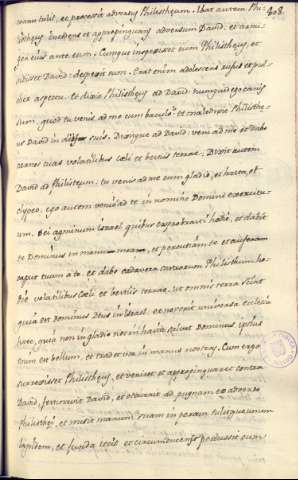 308.
manu tulit, et processit adversus Philistheum. Ibat autem Phi-
listheus incedens et appropinquans adversum David, et armi-
ger eius ante eum. Cumque inspexisset eum Philistheus, et
vidisset David despexit eum. Erat enim adolescens rufus et pul-
cher aspectu. et dixit Philistheus ad David numquid ego canis
sum, quod tu venis ad me cum baculo? et maledixit Philisthe-
us David in diis suis. Dixitque ad David. veni ad me et dabo
carnes tuas volatilibus coeli et bestiis terrae. Dixit autem
David ad Philisteum. tu venis ad me cum gladio, et hasta, et
clypeo. ego autem venio ad te in nomine Domini exercitu-
um. Dei agminum israel quibus exprobrasti hodie, et dabit
te Dominus in manu mea, et percutiam te et auferam
caput tuum a te. et dabo cadavera castrorum Philisthim ho-
die volatilibus coeli et bestiis terrae. ut omnis terra sciat
quia est Dominus Deus in israel. et noverit universa ecclesia
haec, quia non in gladio nec in hasta salvat Dominus ipsius
enim est bellum, et tradet vos in manus nostras. Cum ergo
surrexisset Philistheus, et veniret et appropinquaret contra
David, festinavit David, et cucurrit ad pugnam ex adverso
Philisthei, et misit manum suam in peram tulitque unum
lapidem, et funda iecit et circumducens percussit eum